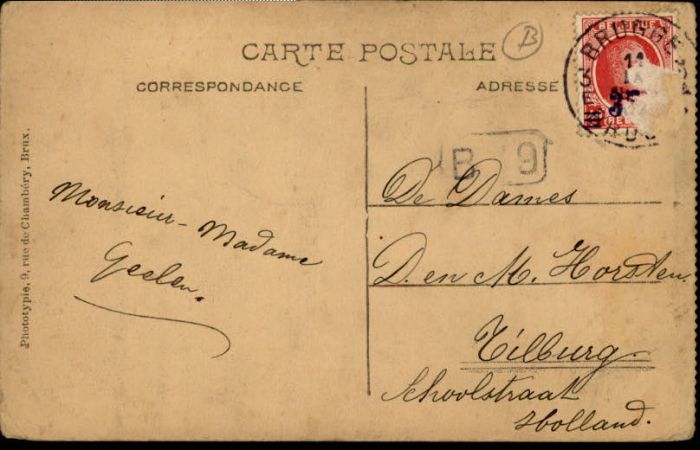 CARTE POSTALE
B
CORRESPONDANCE
ADRESSÉ
BRUGGE
11
BELGIQUE
35
B 9
De Dames
D. en M. Horsten.
Tilburg.
Schoolstraat
Holland.
Monsieur - Madame
Geelen.
Phototypie, 9, rue de Chambéry, Brux.